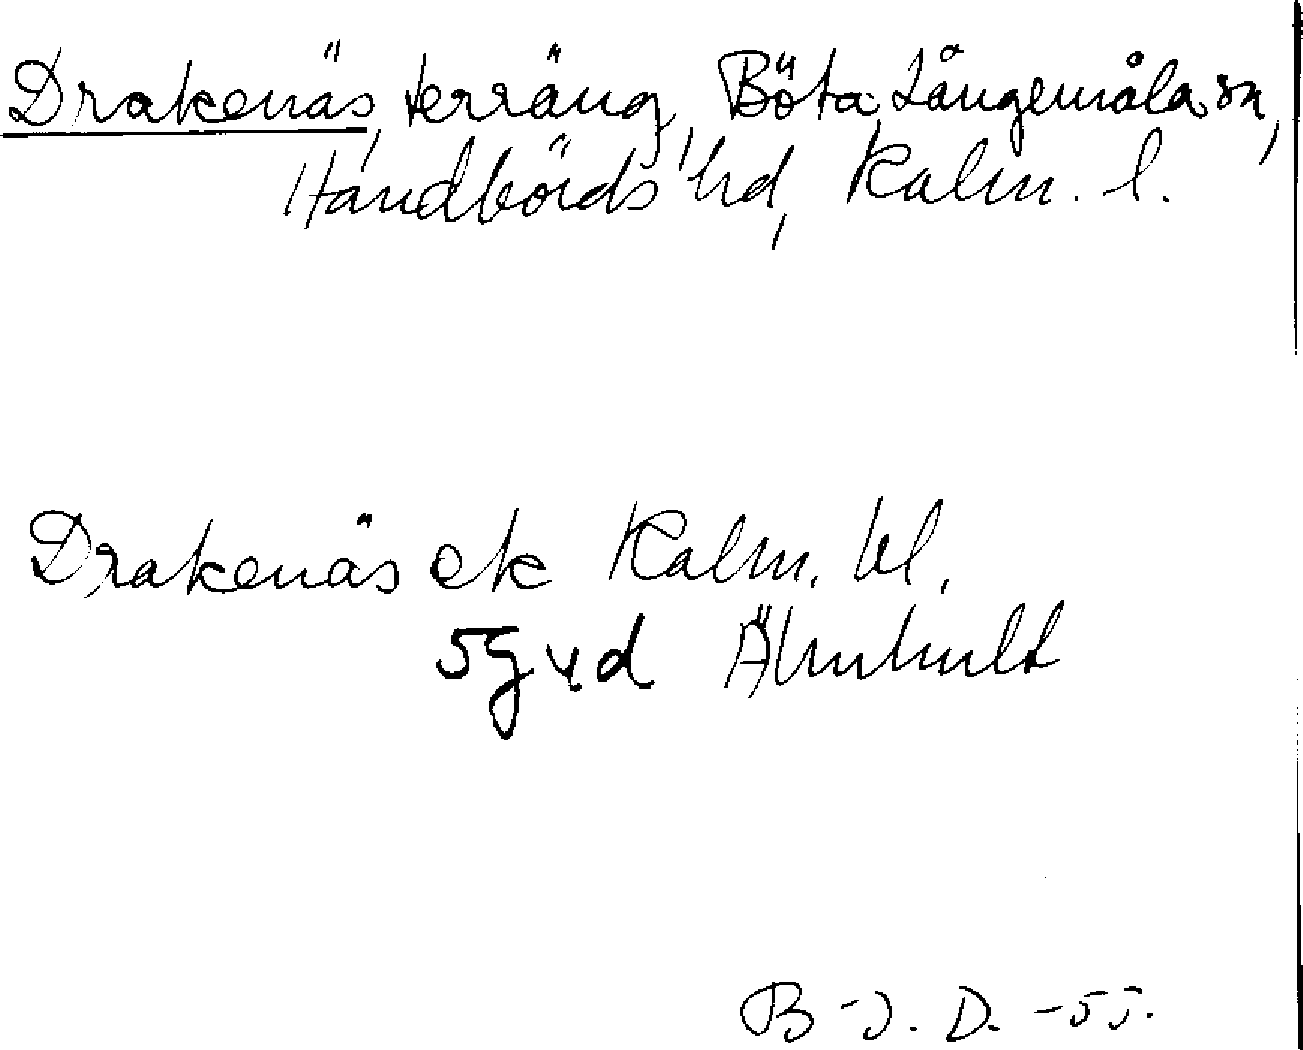 Drakenäs, terräng, Böta, Långemåla sn,
Handbörds hd, Kalm. l.
Drakenäs ek Kalm. bl.
5G vd Älmhult
B-J. D. -55.